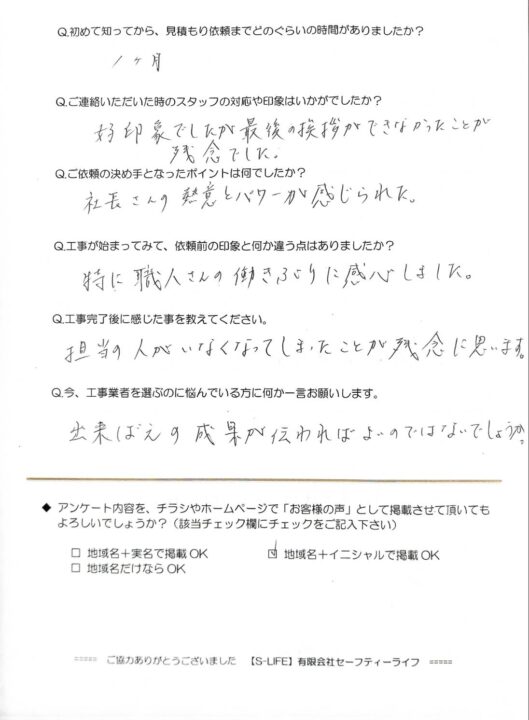 Q.初めて知ってから、見積もり依頼までどのぐらいの時間がありましたか？
1ヶ月
Q.ご連絡いただいた時のスタッフの対応や印象はいかがでしたか？
好印象でしたが最後の挨拶ができなかったことが
残念でした。
Q.ご依頼の決め手となったポイントは何でしたか？
社長さんの熱意とパワーが感じられた。
Q.工事が始まってみて、依頼前の印象と何か違う点はありましたか？
特に職人さんの働きぶりに感心しました。
Q.工事完了後に感じた事を教えてください。
担当の人がいなくなってしまったことが残念に思います。
Q.今、工事業者を選ぶのに悩んでいる方に何か一言お願いします。
出来ばえの成果が伝わればよいのではないでしょうか。
◆ アンケート内容を、チラシやホームページで「お客様の声」として掲載させて頂いても
よろしいでしょうか？（該当チェック欄にチェックをご記入下さい）
□ 地域名＋実名で掲載OK ☑ 地域名＋イニシャルで掲載OK
□ 地域名だけなら OK
===== ご協力ありがとうございました 【S-LIFE】有限会社セーフティーライフ =====